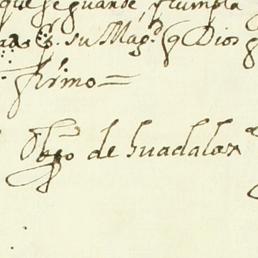 que se guarde y cumpla
su Mag.d q Dios g
firmo =
Obpo de Guadalax